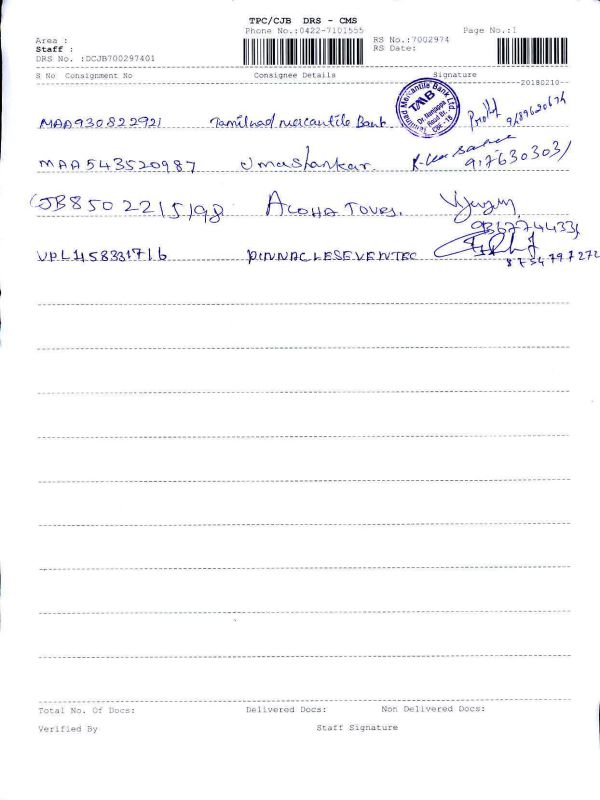 TPC/CJB DRS - CMS
Phone No.:0422-7101555
Page No.:1
Area :
RS No.:7002974
Staff :
RS Date:
DRS No. :DCJB700297401
S No Consignment No Consignee Details Signature
20180210
MAA930822921 Tamilnad Mercantile Bank
Tamilnad Mercantile Bank Ltd.
TMB
Dr. Nanjappa
Road Br.
CBE - 18
MAA543520987 Umashankar.
JB8502215198 ALOHA TOURS.
VPL458331716 PINNACLESEVENTEC
8754797272
Total No. Of Docs: Delivered Docs: Non Delivered Docs:
Verified By Staff Signature